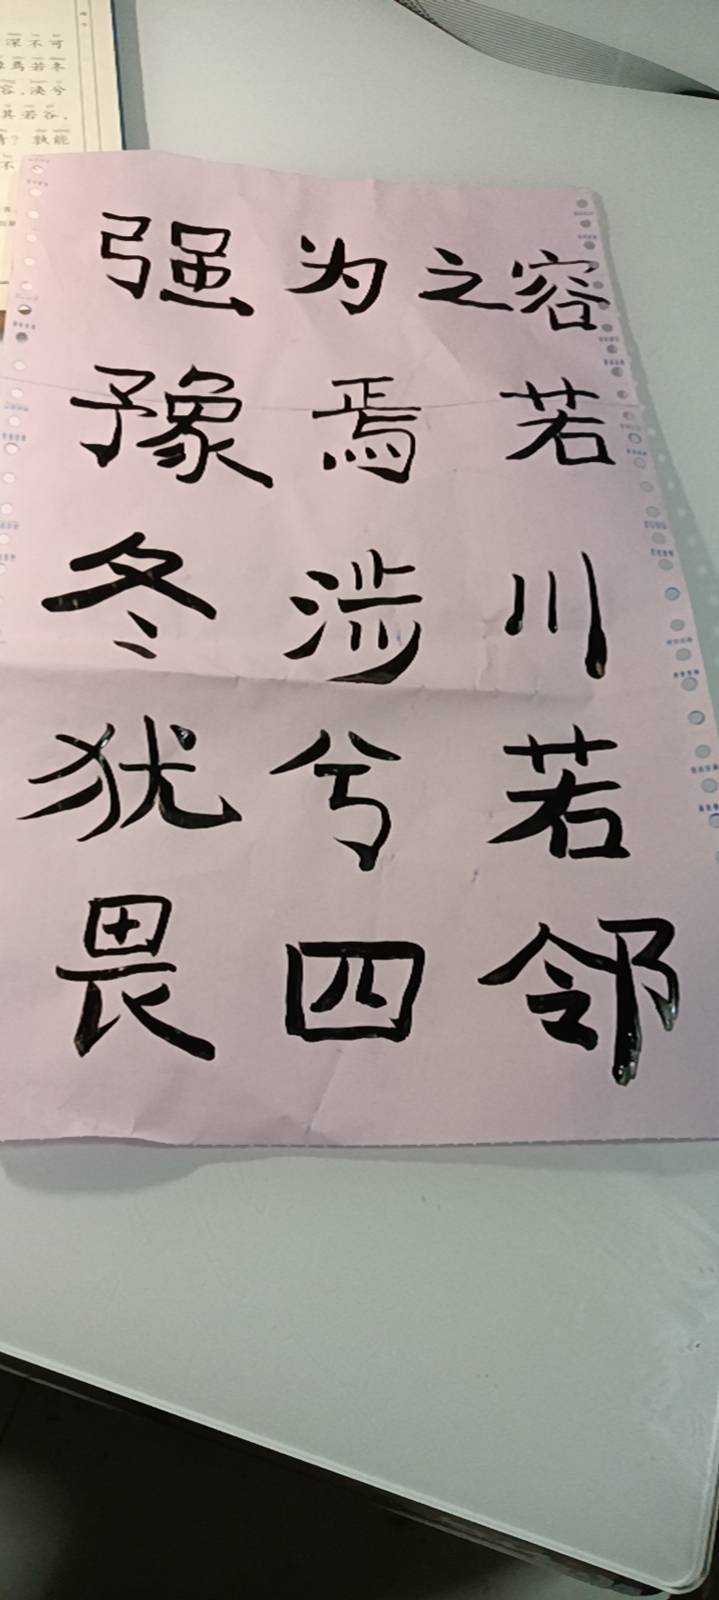 深不可
焉若冬
容,涣兮
其若谷,
清?孰能
不
强为之容
豫焉若
冬涉川
犹兮若
畏四邻